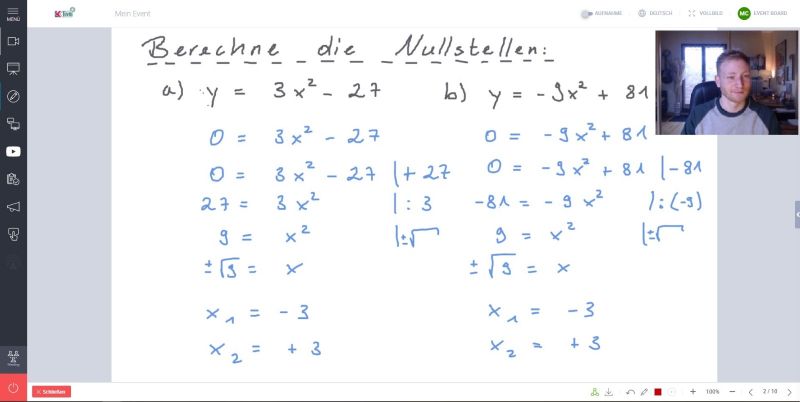 MENÜ
K live
Mein Event
AUFNAHME
DEUTSCH
VOLLBILD
MC
EVENT BOARD
Berechne die Nullstellen:
a) y = 3x² - 27
0 = 3x² - 27
0 = 3x² - 27 |+ 27
27 = 3x² |: 3
9 = x² |±√
±√9 = x
x₁ = - 3
x₂ = + 3
b) y = - 9x² + 81
0 = - 9x² + 81
0 = - 9x² + 81 |- 81
-81 = - 9x² |: (-9)
9 = x² |±√
±√9 = x
x₁ = - 3
x₂ = + 3
× Schließen
+ 100% −
2 / 10